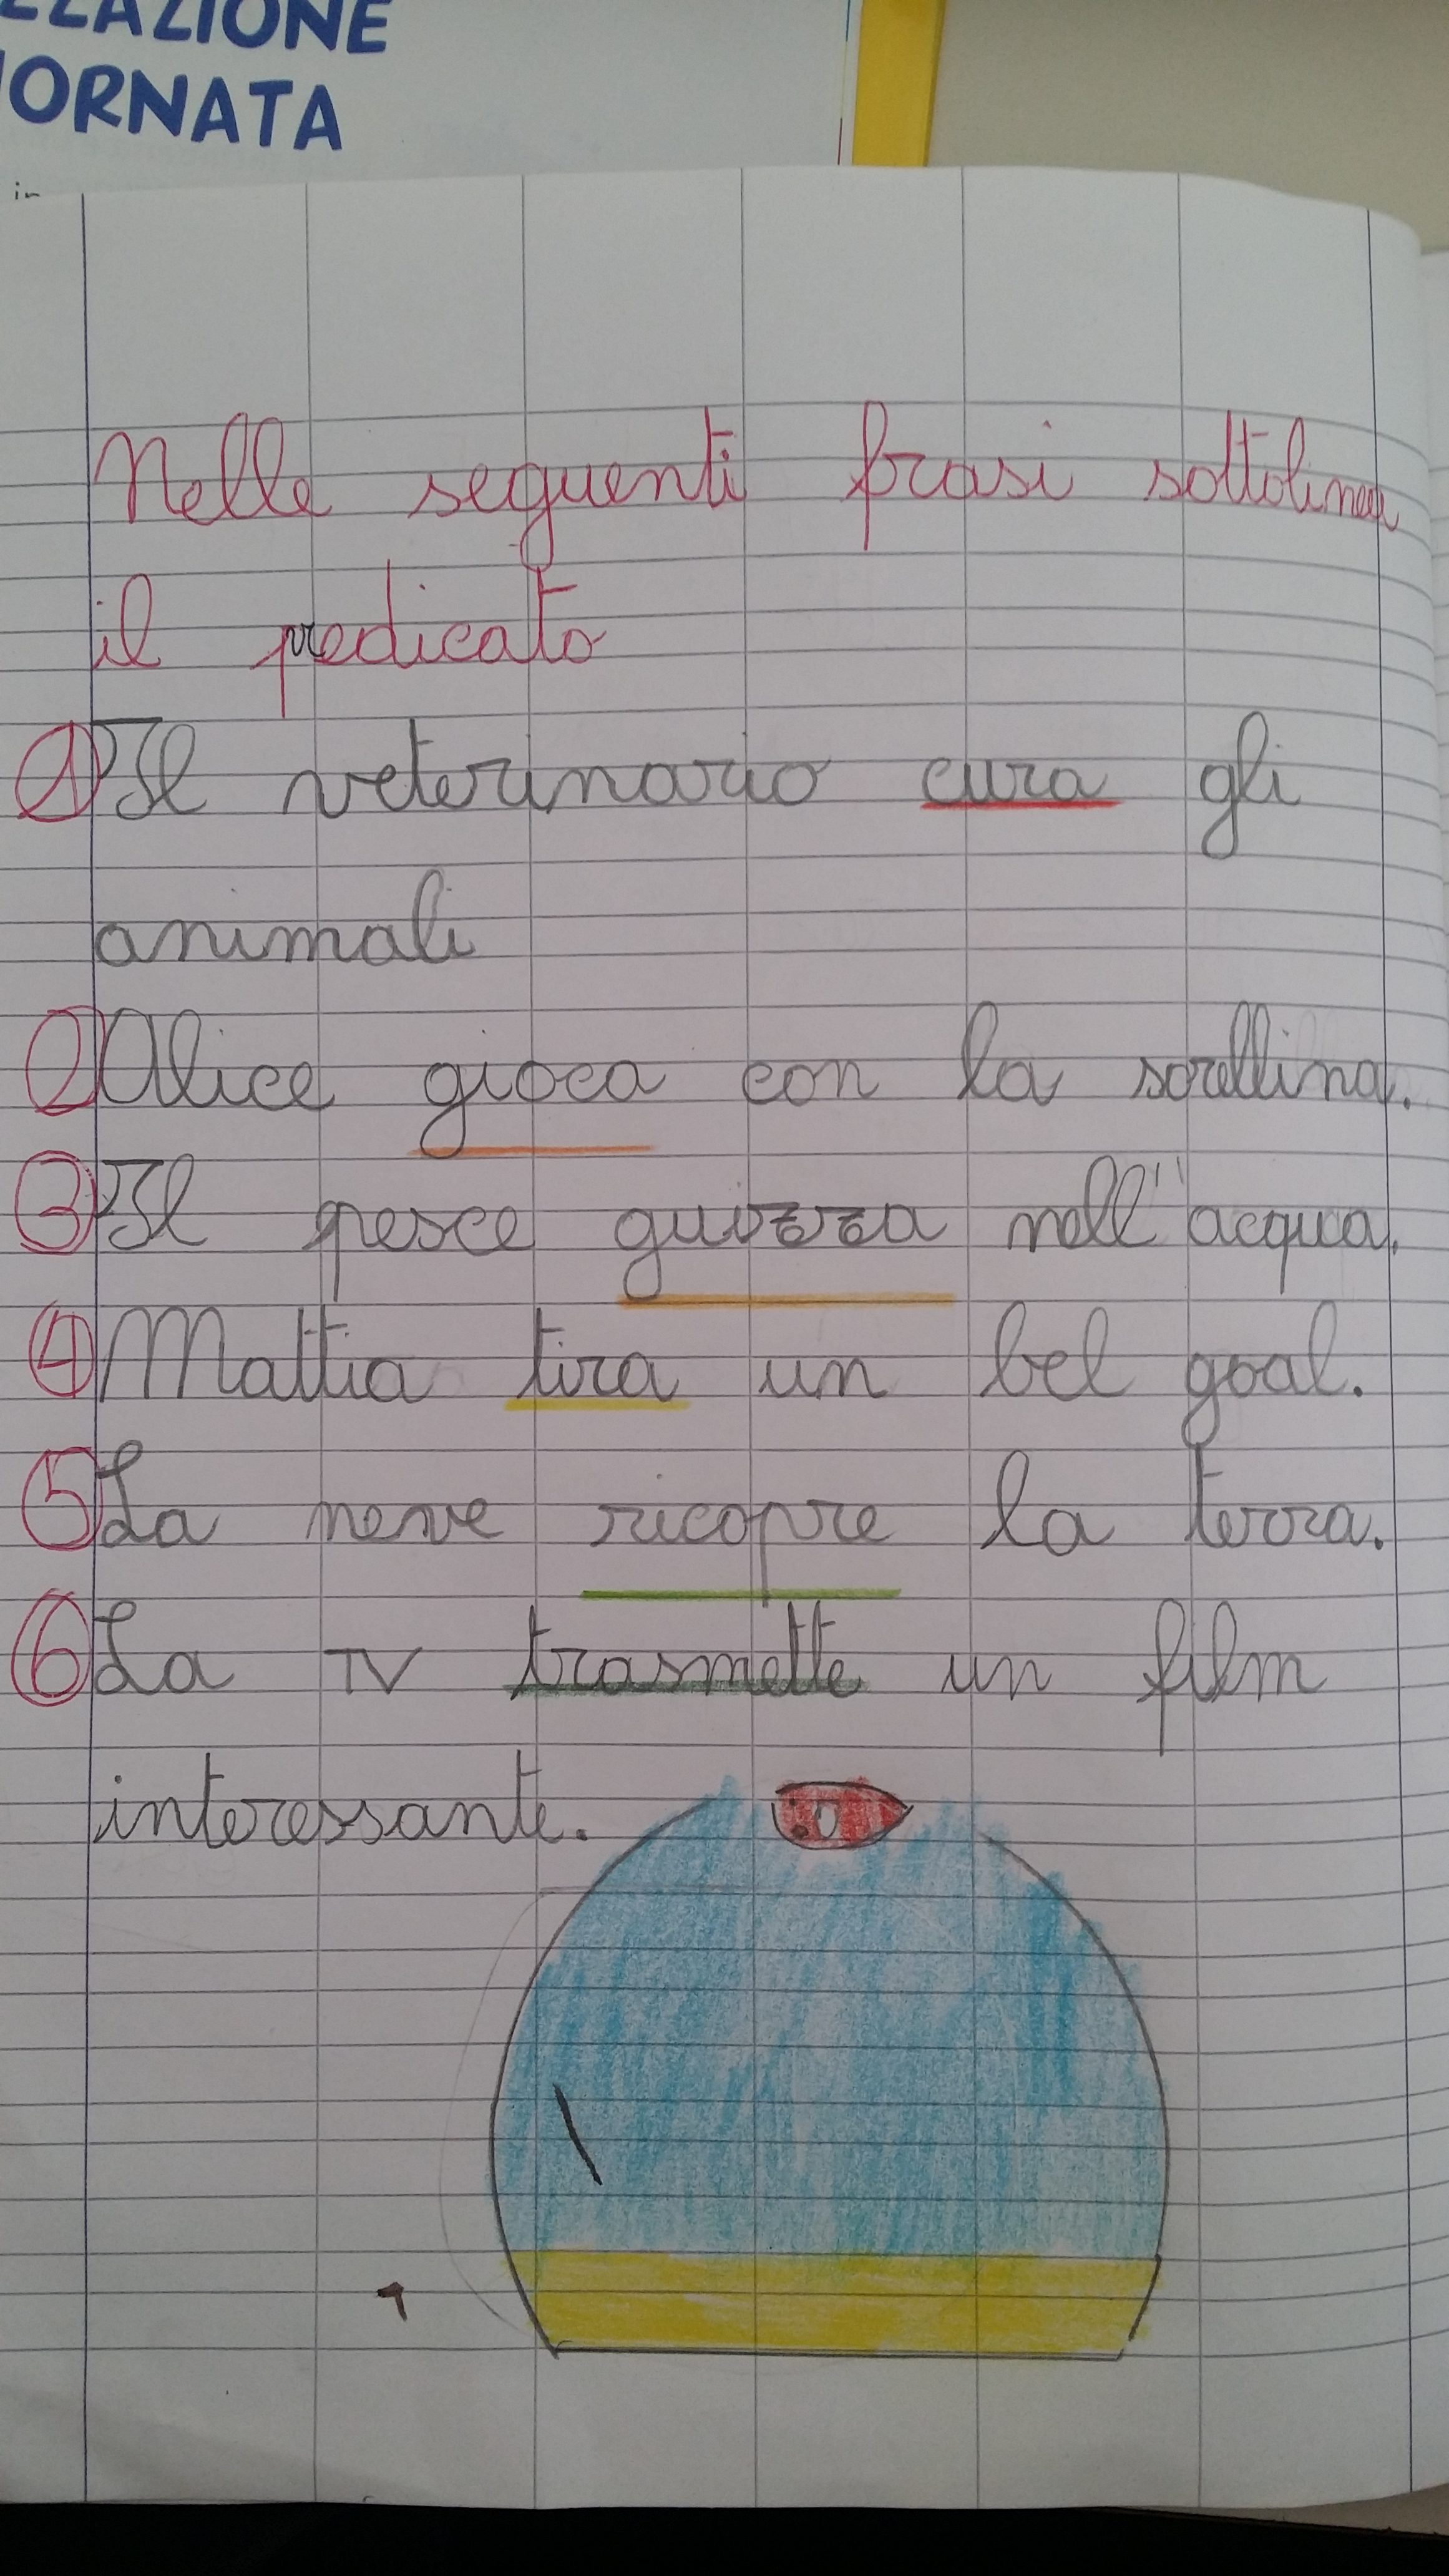 ZZAZIONE
IORNATA
in
Nelle seguenti frasi sottolinea
il predicato
① Il veterinario cura gli
animali
② Alice gioca con la sorellina.
③ Il pesce guizza nell'acqua.
④ Mattia tira un bel goal.
⑤ La neve ricopre la terra.
⑥ La TV trasmette un film
interessante.